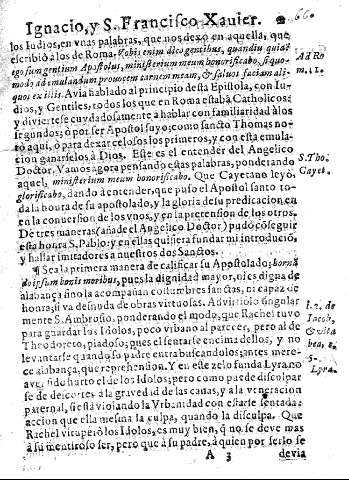 Ignacio, y S. Francisco Xauier. 66.
los Iudios, en vnas palabras, que nos dexò en aquella, que
escribiò a los de Roma. Vobis enim dico gentibus, quandiu quidẽ
ego sum gentium Apostolus, ministerium meum honorificabo, si quo-
modo ad emulandum prouocem carnem meam, & saluos faciam ali-
quos ex illis. Auia hablado al principio desta Epistola, con Iu-
dios, y Gentiles, todos los que en Roma estabã Catholicos:
y diuierte se cuydadosamente à hablar con familiaridad à los
segundos; ò por ser Apostol suyo; como sancto Thomas no-
tò aqui, ò para dexar celosos los primeros, y con esta emula-
cion ganarselos à Dios. Este es el entender del Angelico
Doctor. Vamos agora pensando estas palabras, ponderando
aquel, ministerium meum honorificabo. Que Cayetano leyò,
glorificabo, dando à entender, que puso el Apostol santo to-
da la houra de su apostolado, y la gloria de su predicacion en
en la conuersion de los vnos, y en la pretension de los otros.
De tres maneras (añade el Angelico Doctor) pudo cõseguir
esta honra S. Pablo; y en ellas quisiera fundar mi introduciõ,
y hallar imitadores a nuestros dos Sanctos.
¶ Sea la primera manera de calificar su Apostolado; borna
do ipsum bonis moribus, pues la dignidad mayor, ni es digna de
alabança sino la acompañan costumbres sanctas, ni capaz de
honra; si va desnuda de obras virtuosas. Aduirtiolo singular
mente S. Ambrosio, ponderando el modo, que Rachel tuvo
para guardar los Idolos, poco vrbano al parecer, pero al de
Theodoreto, piadoso; pues el sentarse encima dellos, y no
levantarse quando su padre entraba buscandolos; antes mere-
ce alabança, que reprehension. Y en este zelo funda Lyrano
aver sido hurto el de los Idolos; pero como puede disculpar
se de descortes à la gravedad de las canas, y a la veneracion
paternal, si està violando la Vrbanidad con estarse sentada:
accion que ella mesma la culpa, quando la disculpa. Que
Rachel vituperò los Idolos, es muy bien, q̃ no se deve mas
à su mentiroso ser, pero que à su padre, à quien por serlo se
A 3 devia
Ad Ro
m. 11.
S. Tho.
Cayet.
l. 2. de
Iacob,
& vita
bea, c.
5.
Lyra.